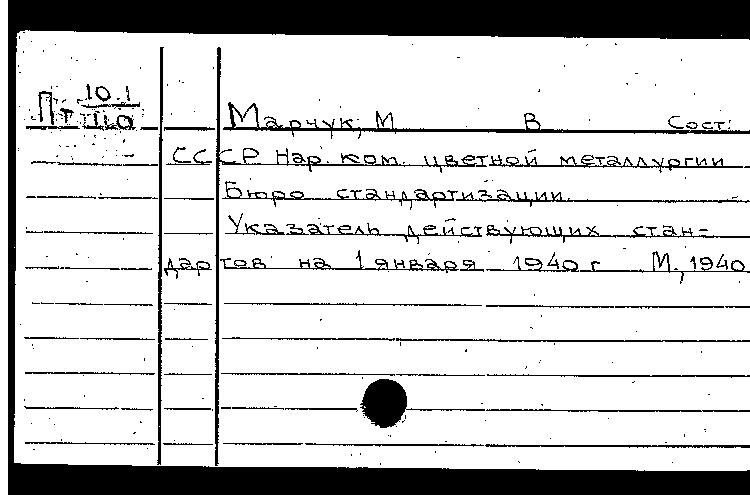 Пт 10.1
Марчук, М В Сост.
СССР Нар. ком. цветной металлургии
Бюро стандартизации.
Указатель действующих стан=
дартов на 1 января 1940 г М., 1940